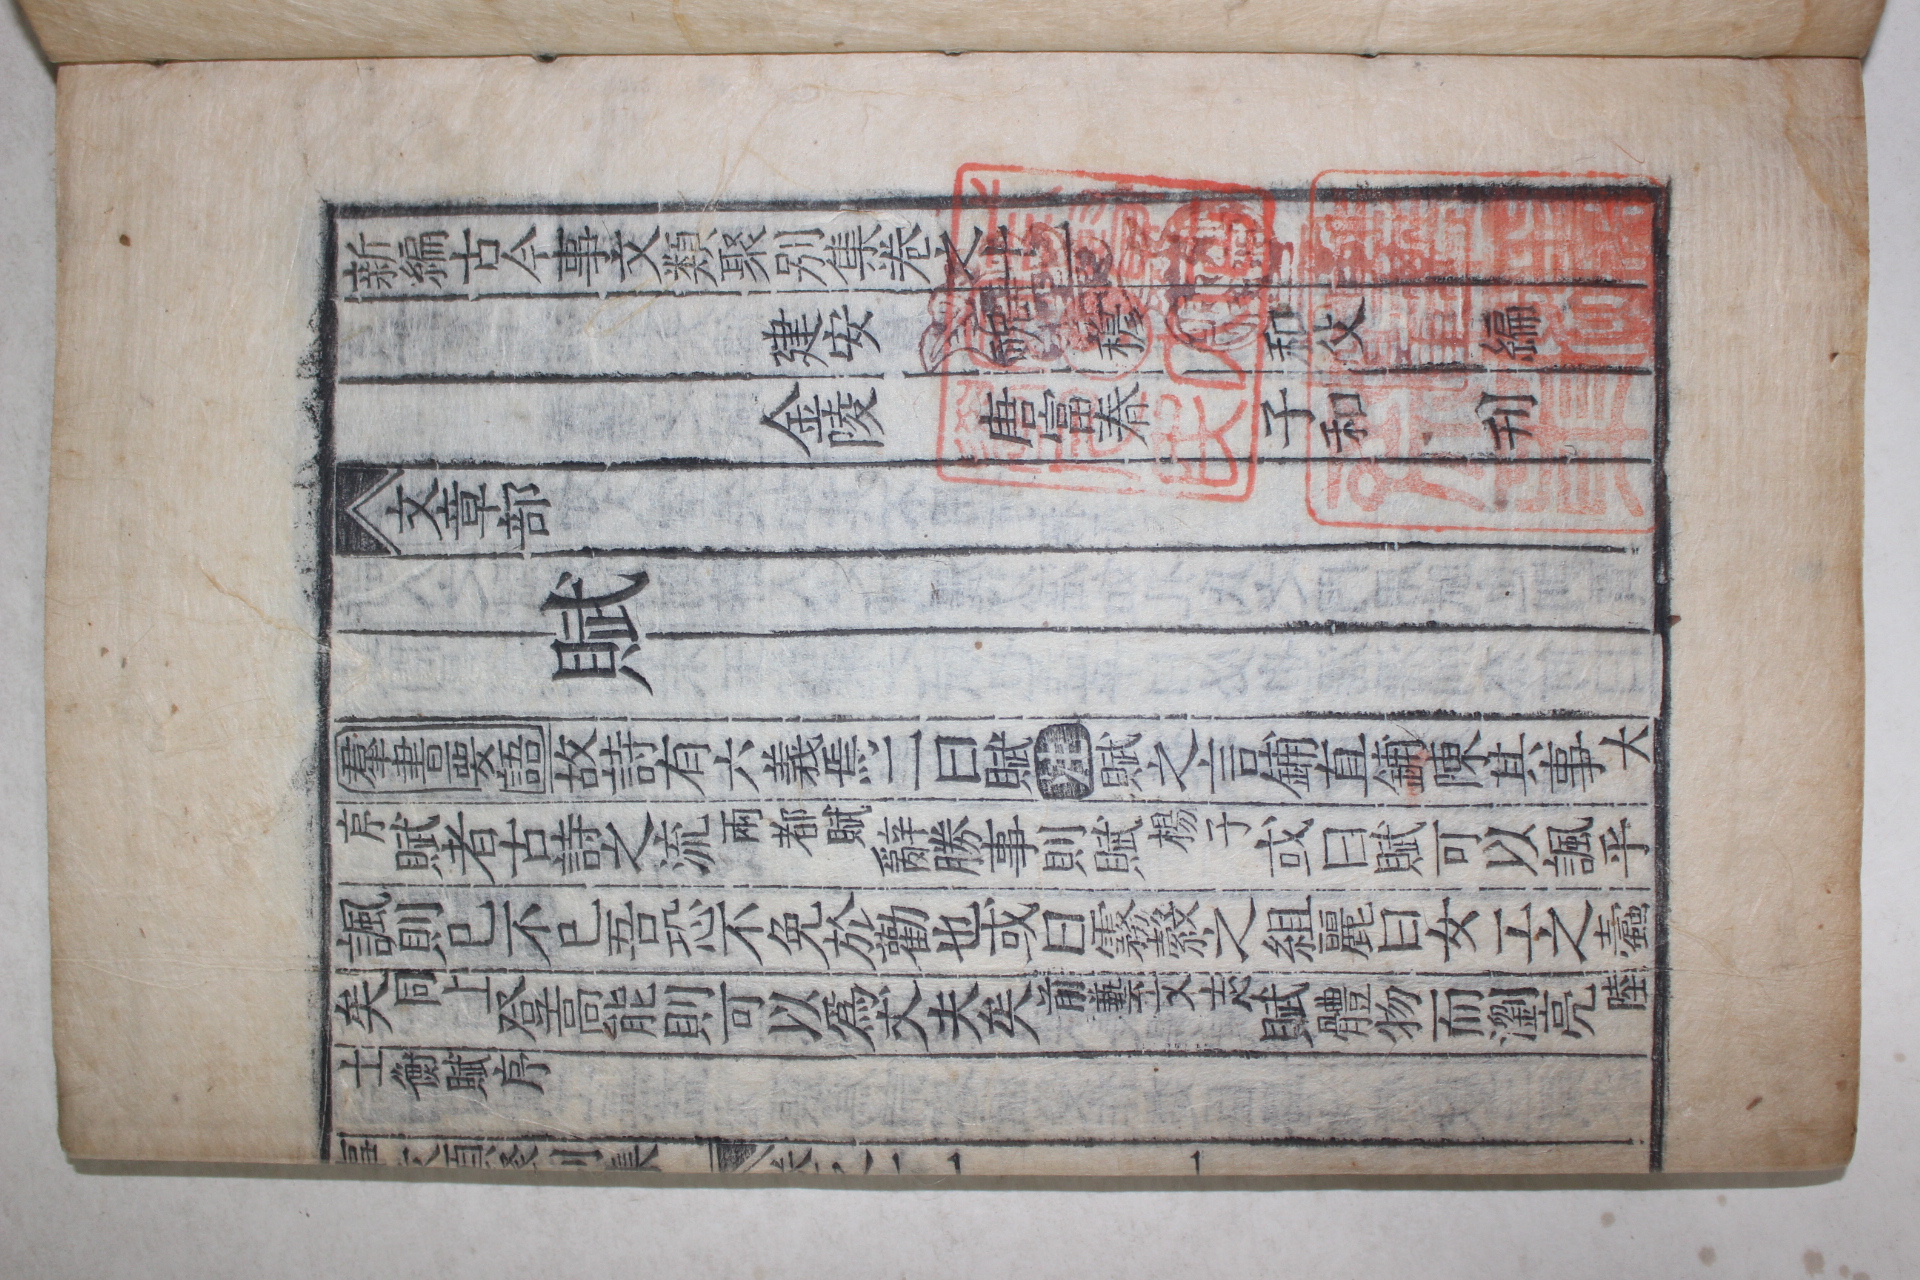 新編古今事文類聚別集卷之十一
建安 祝穆 和父 編
金陵 唐富春 子和 刊
文章部
賦
羣書要語故詩有六義焉二曰賦注賦之言鋪直鋪陳其事大
序賦者古詩之流兩都賦辭勝事則賦楊子或曰賦可以諷乎
諷則已不已吾恐不免於勸也或曰霧縠之組麗曰女工之蠹
矣同上登高能則可以爲大夫矣前藝文志賦體物而瀏亮陸
士衡賦序
事文類聚別集 卷之十一 一